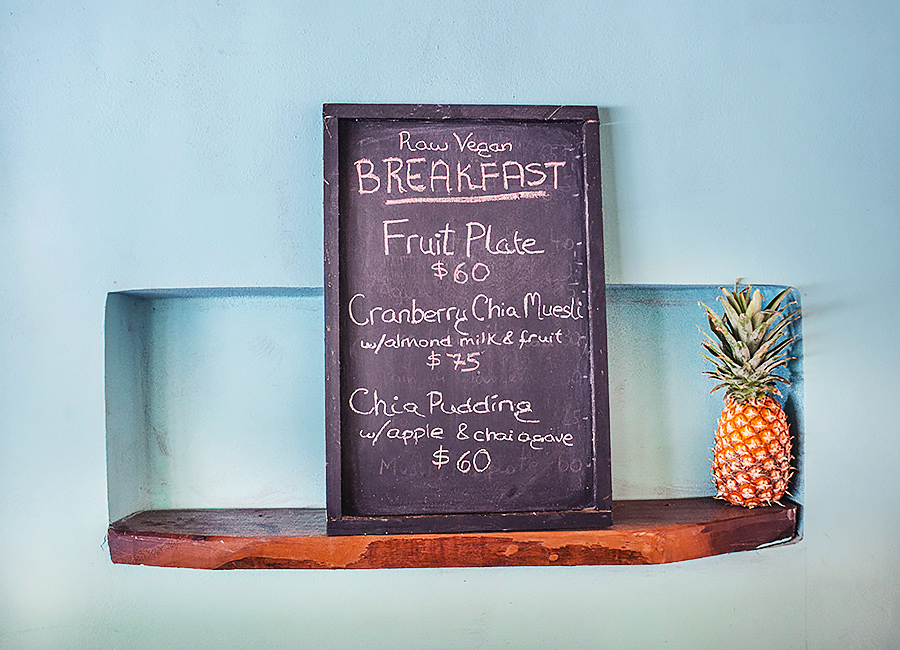 Raw Vegan
BREAKFAST
Fruit Plate
$60
Cranberry Chia Muesli
w/almond milk & fruit
$75
Chia Pudding
w/apple & chai agave
$60